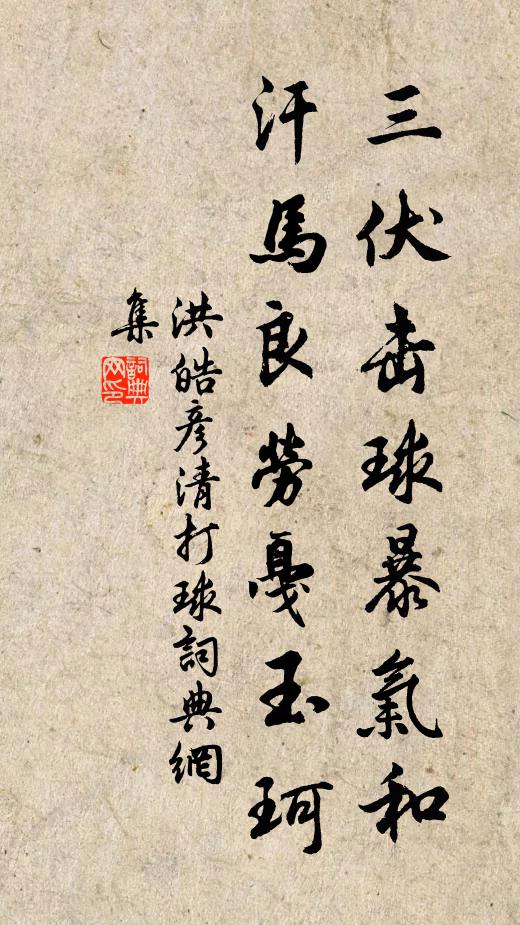 三伏击球暴氣和
汗馬良勞戛玉珂
洪皓彦清打球詞典網
集
詞典网印